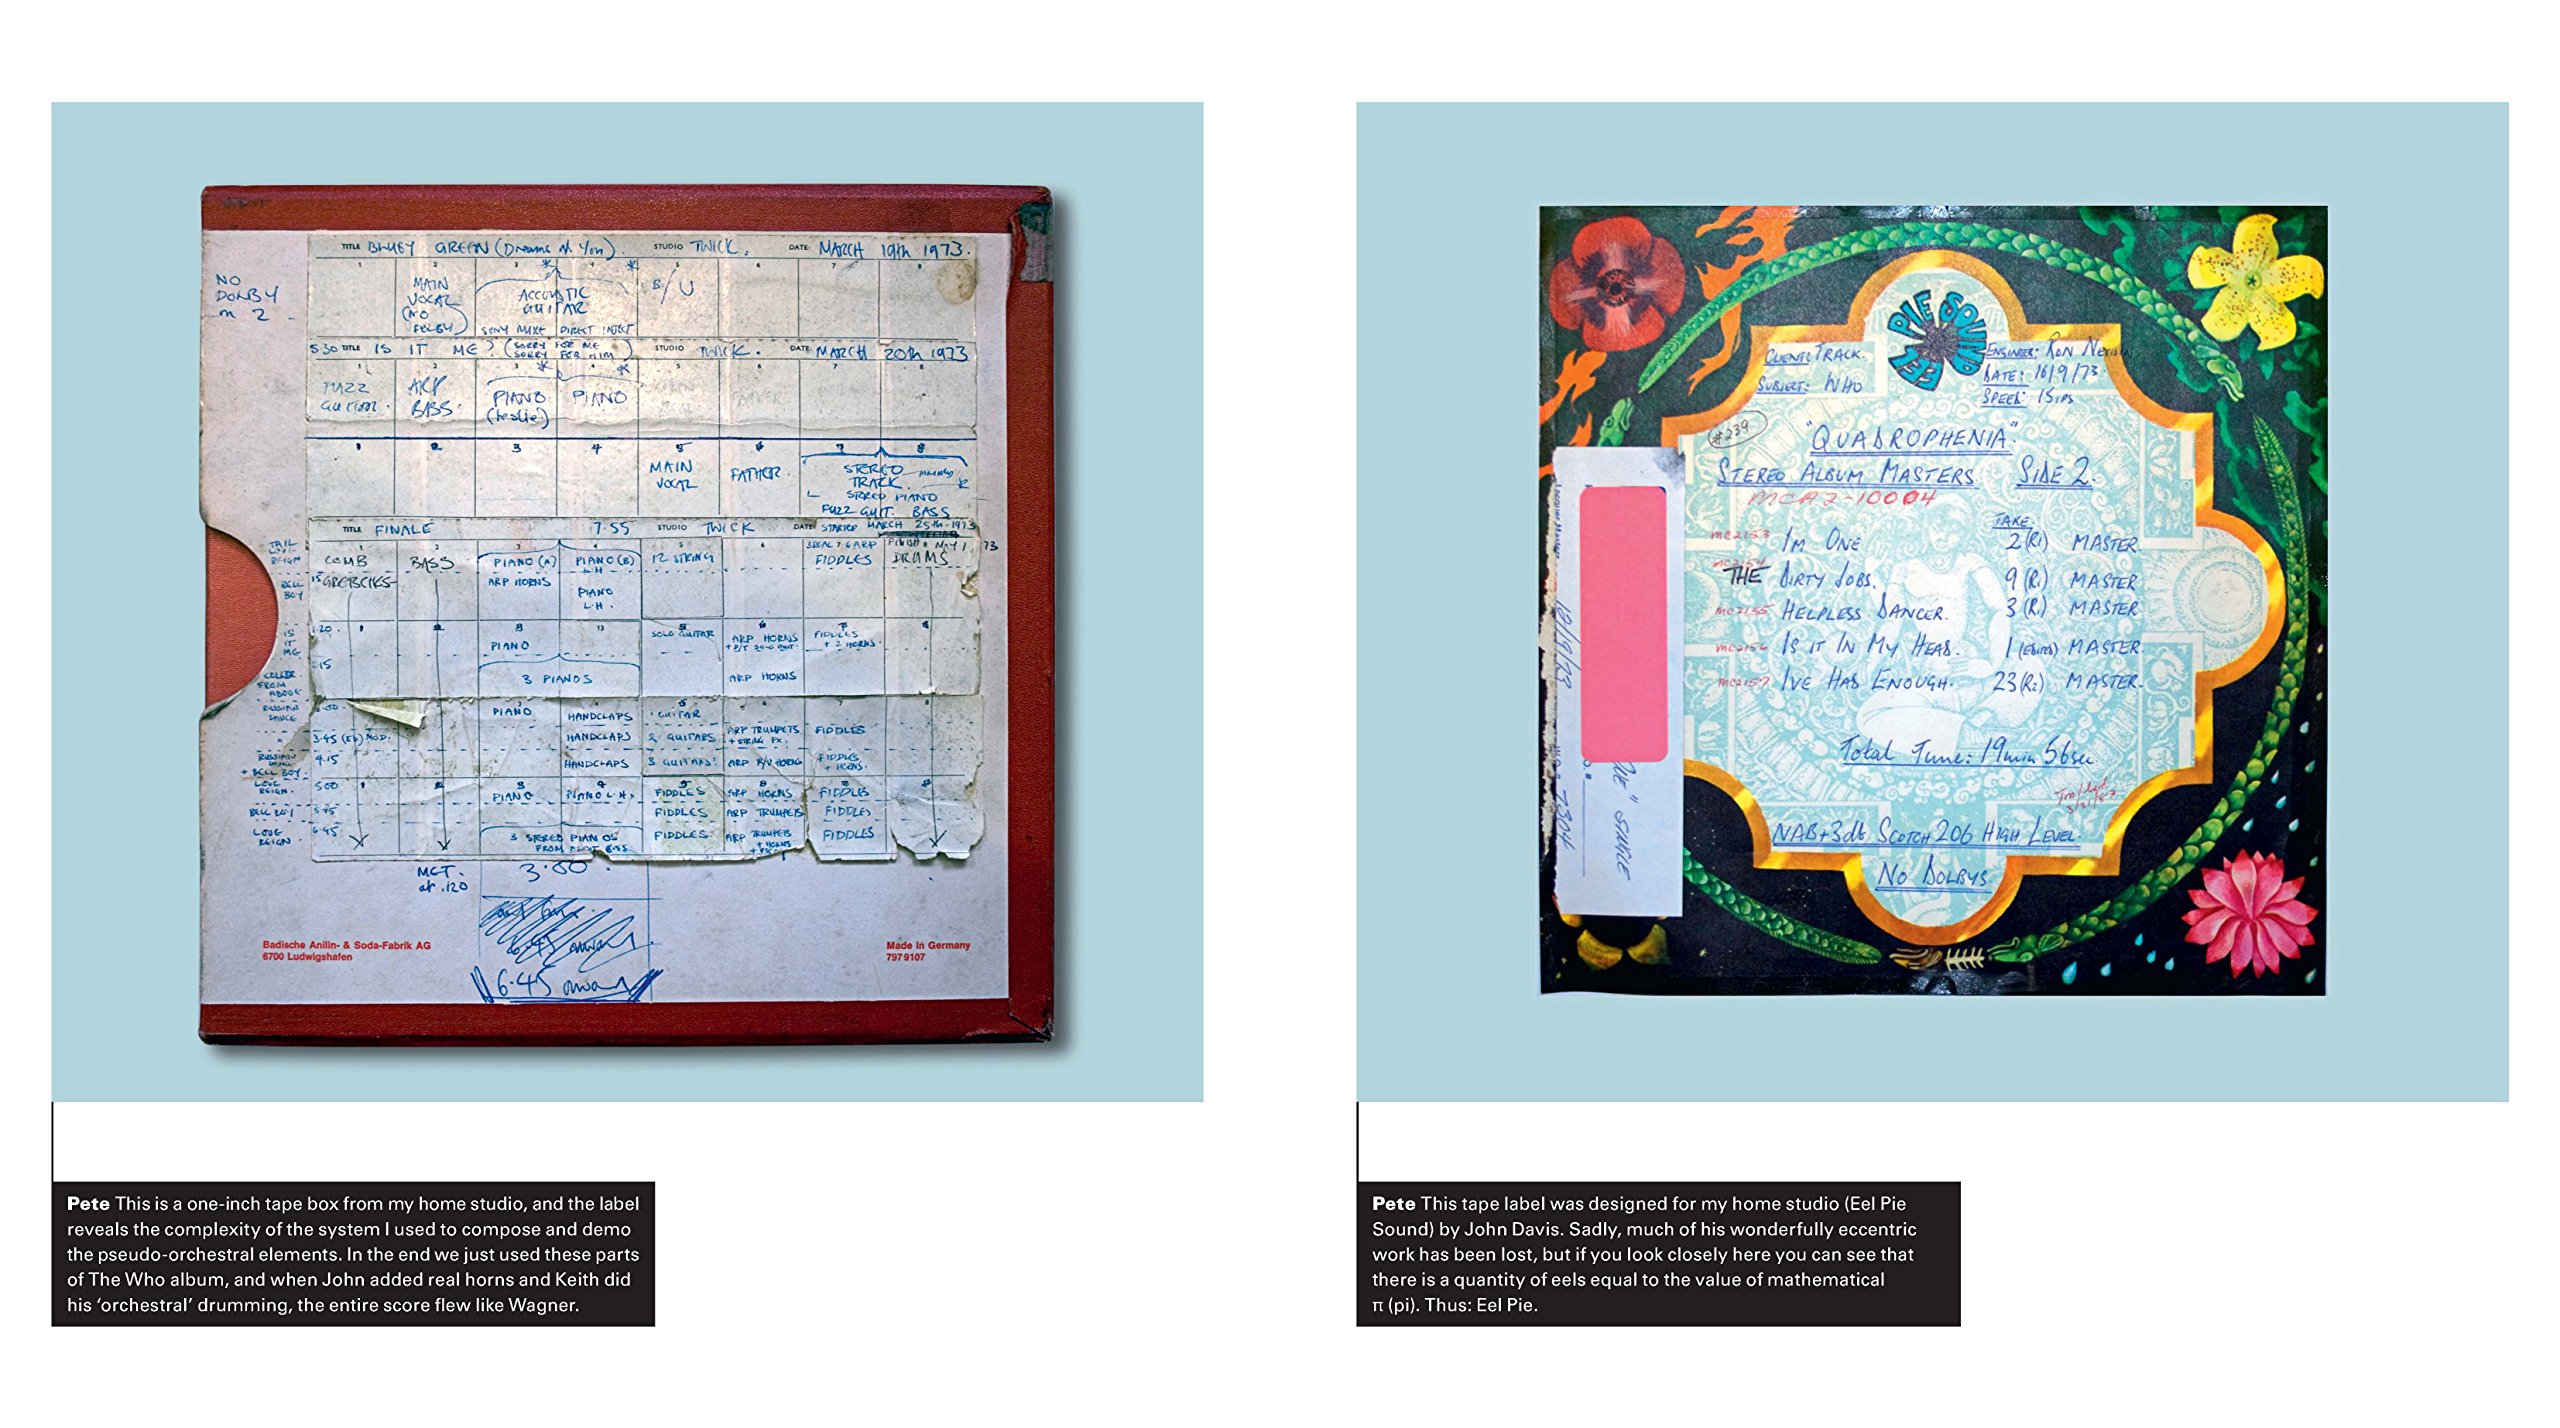 TITLE BLUEY GREEN (Dreams of You). STUDIO TWICK. DATE: MARCH 19th 1973.
NO
DOLBY
on 2
1 2 3 4 5 6 7 8
MAIN
VOCAL
(NO
ACCOUSTIC
GUITAR
B/U
SONY MIKE DIRECT INJECT
5.30 TITLE IS IT ME? (SORRY FOR ME
SORRY FOR HIM) STUDIO TWICK. DATE: MARCH 20th 1973
1 2 3 4 5 6 7 8
FUZZ
GUITAR.
ARP
BASS.
PIANO
(Leslie)
PIANO
1 2 3 4 5 6 7 8
MAIN
VOCAL
FATHER.
STEREO
TRACK.
L R
STEREO PIANO
FUZZ GUIT. BASS
TITLE FINALE 7.55 STUDIO TWICK DATE: STARTED MARCH 25th. 1973
FINISH MAY 1, 73
1 2 3 4 5 6 7 8
COMB BASS PIANO (A) PIANO (B) 12 STRING FIDDLES DRUMS
BELL
BOY
ARP HORNS
PIANO
L.H.
IS
IT
ME
1.20.
PIANO
SOLO GUITAR
ARP HORNS
FIDDLES
+ 2 HORNS.
FROM
ABOVE
3 PIANOS
ARP HORNS
RUSSIAN
DANCE
PIANO HANDCLAPS GUITAR
3.45 (Eb) MOD. HANDCLAPS 2 GUITARS ARP TRUMPETS FIDDLES
+ STRING FX.
RUSSIAN
DANCE
+ BELL BOY.
4.15
HANDCLAPS 3 GUITARS! ARP HORNS FIDDLES
+ HORNS.
LOVE
REIGN.
5.00
PIANO PIANO L.H. FIDDLES ARP HORNS FIDDLES
BELL BOY FIDDLES ARP TRUMPETS FIDDLES
LOVE
REIGN.
6.45
3 STEREO PIANOS
FROM
FIDDLES ARP TRUMPETS FIDDLES
+ HORNS
MCT.
at .120
3.00.
6.45 onward
6.45 onward
Badische Anilin- & Soda-Fabrik AG
6700 Ludwigshafen
Made in Germany
797 9107
Pete This is a one-inch tape box from my home studio, and the label
reveals the complexity of the system I used to compose and demo
the pseudo-orchestral elements. In the end we just used these parts
of The Who album, and when John added real horns and Keith did
his ‘orchestral’ drumming, the entire score flew like Wagner.
EEL PIE SOUND
CLIENT: TRACK.
SUBJECT: WHO
ENGINEER: RON NEVISON
DATE: 16/9/73
SPEED: 15 IPS
#239
"QUADROPHENIA"
STEREO ALBUM MASTERS SIDE 2.
MCA2-10004
TAKE
MC2153 I'M ONE 2 (R1) MASTER
MC2154
THE DIRTY JOBS. 9 (R1) MASTER
MC2155 HELPLESS DANCER. 3 (R1) MASTER
MC2156 IS IT IN MY HEAD. 1 (EDITED) MASTER.
MC2157 IVE HAD ENOUGH. 23 (R2) MASTER.
Total Time: 19 min 56 sec
NAB+3db SCOTCH 206 HIGH LEVEL.
NO DOLBYS.
Pete This tape label was designed for my home studio (Eel Pie
Sound) by John Davis. Sadly, much of his wonderfully eccentric
work has been lost, but if you look closely here you can see that
there is a quantity of eels equal to the value of mathematical
π (pi). Thus: Eel Pie.